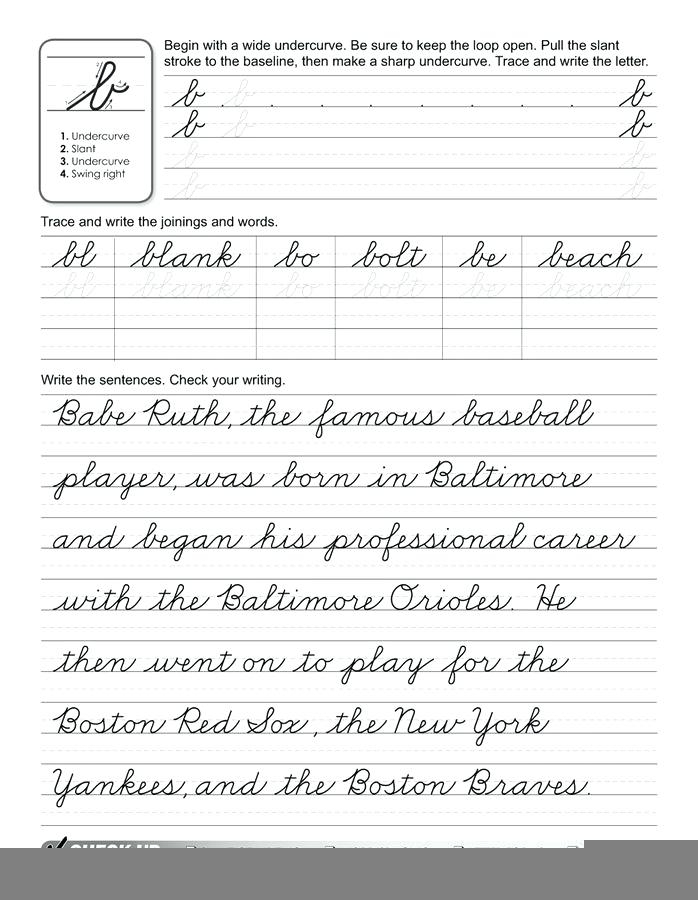 Begin with a wide undercurve. Be sure to keep the loop open. Pull the slant
stroke to the baseline, then make a sharp undercurve. Trace and write the letter.
b b b
b b b
b b
b b
1. Undercurve
2. Slant
3. Undercurve
4. Swing right
b
Trace and write the joinings and words.
bl blank bo bolt be beach
bl blank bo bolt be beach
Write the sentences. Check your writing.
Babe Ruth, the famous baseball
player, was born in Baltimore
and began his professional career
with the Baltimore Orioles. He
then went on to play for the
Boston Red Sox, the New York
Yankees, and the Boston Braves.
CHECK UP